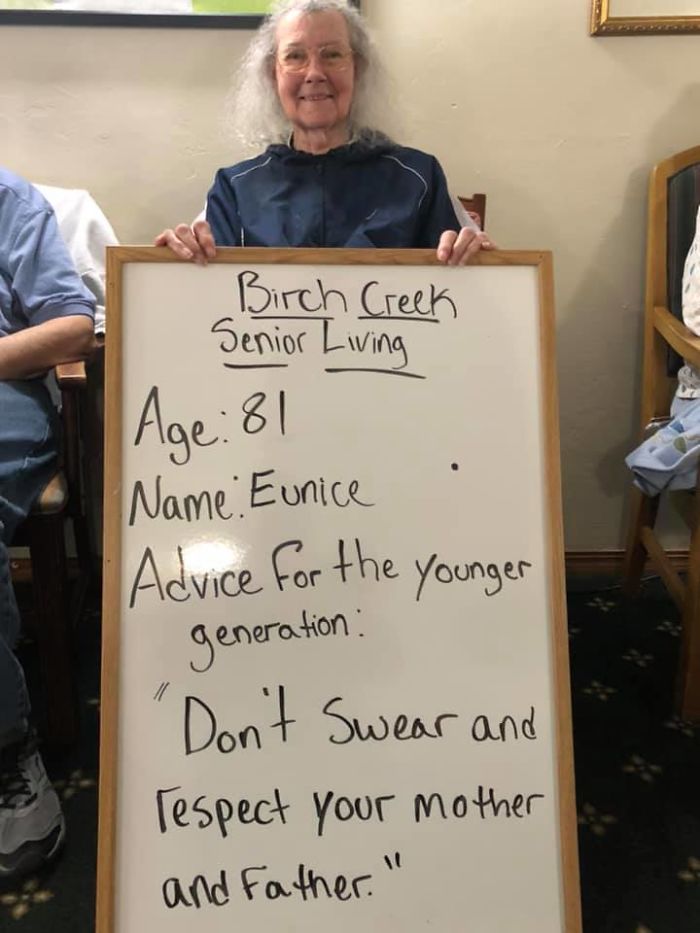 Birch Creek
Senior Living
Age: 81
Name: Eunice
Advice for the younger
generation:
"Don't Swear and
respect your mother
and Father."